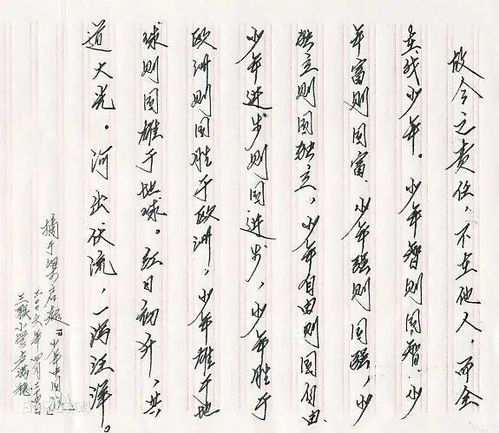 故今之责任，不在他人，而全
在我少年。少年智则国智、少
年富则国富、少年强则国强，少
独立则国独立，少年自由则国自由、
少年进步则国进步，少年胜于
欧洲则国胜于欧洲，少年雄于地
球则国雄于地球。红日初升，其
道大光。河出伏流，一泻汪洋。
摘于梁启超「少年中国说」
年四月
三联小学